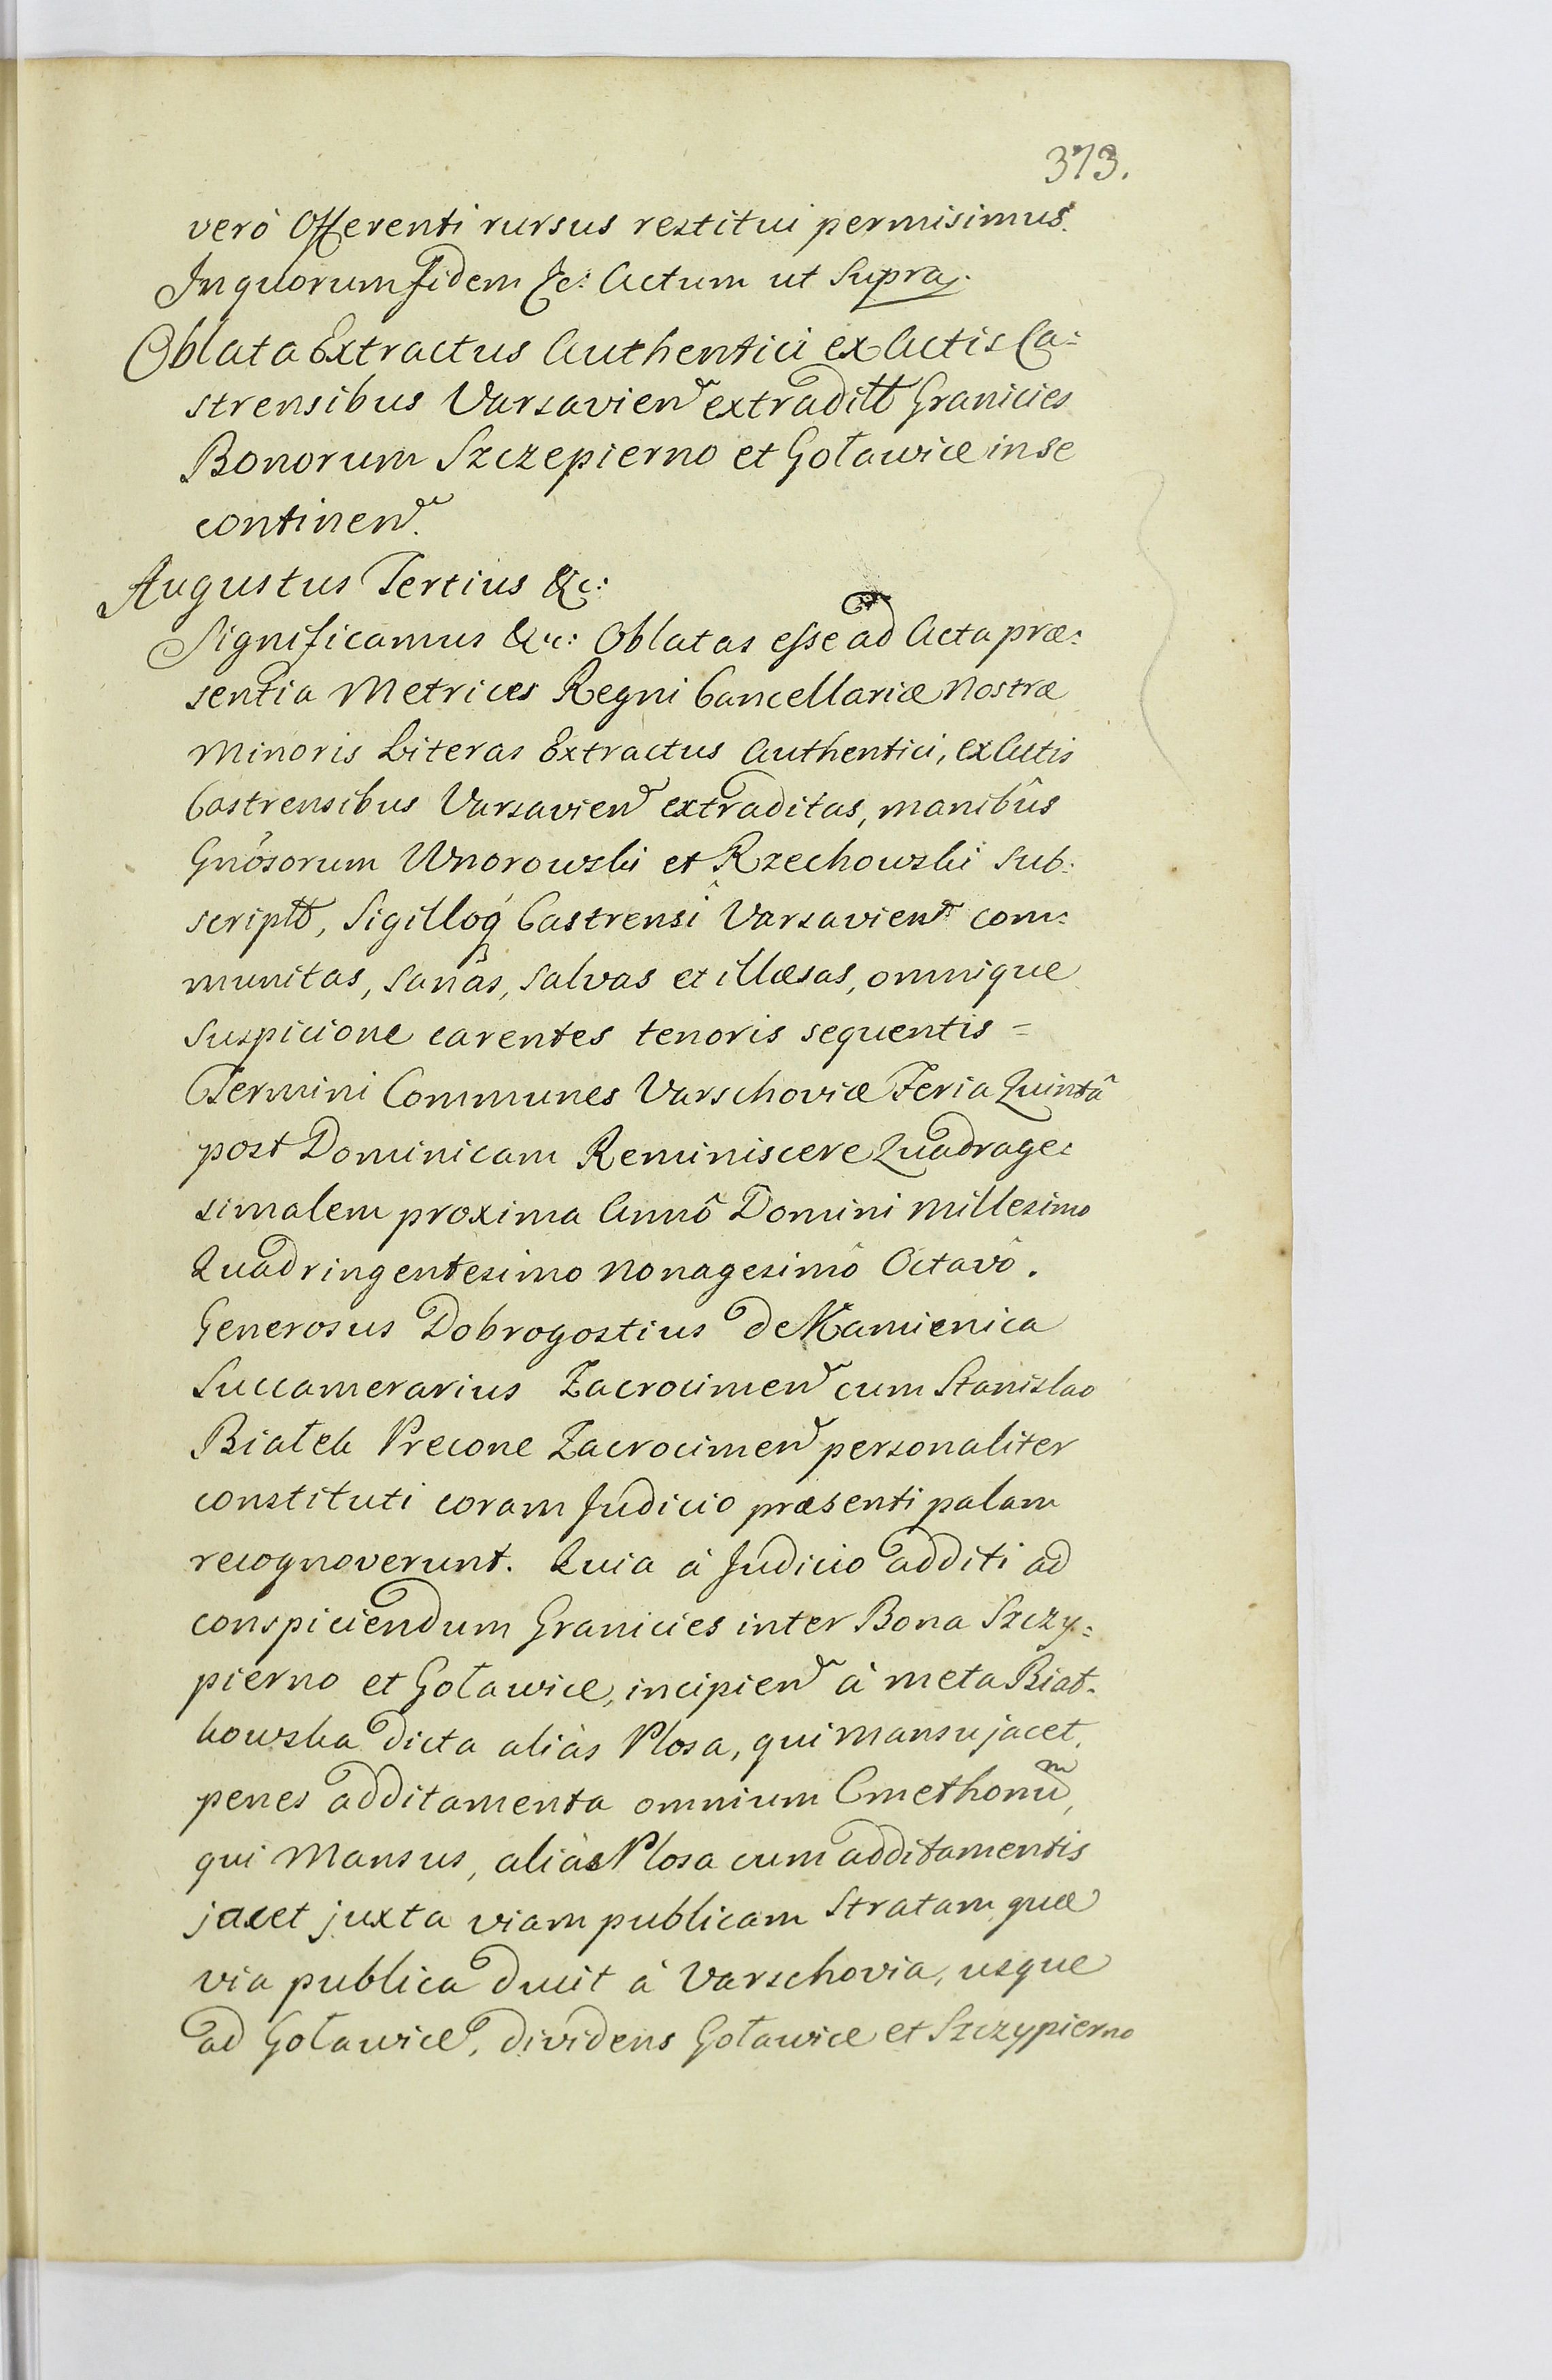 373.
verò Offerenti rursus restitui permisimus.
In quorum fidem &c: Actum ut Supra.
Oblata Extractus Authentici ex Actis Ca=
strensibus Varsavien extraditt Granicies
Bonorum Szczepierno et Goławice in se
continen.
Augustus Tertius &c:
Significamus &c: Oblatas esse ad Acta præ=
sentia Metrices Regni Cancellariæ Nostræ
Minoris Literas Extractus Authentici, ex Actis
Castrensibus Varsavien extraditas, manibûs
Gnōsorum Wnorowski et Rzechowski Sub=
scriptt, Sigilloq́ Castrensî Varsavien com=
munitas, Sanas, Salvas et illæsas, omnique
Suspicione carentes tenoris sequentis =
Termini Communes Varschoviæ Feria Quintâ
post Dominicam Reminiscere Quadrage=
simalem proxima Annô Domini Millesimo
Quadringentesimo Nonagesimô Octavô.
Generosus Dobrogostius de Kamienica
Succamerarius Zacrocimen cum Stanislao
Białek Precone Zacrocimen personaliter
constituti coram Judicio præsenti palam
recognoverunt. Quia à Judicio additi ad
conspiciendum Granicies inter Bona Szczy=
pierno et Goławice, incipien à meta Biał=
kowska dicta aliàs Plosa, qui Mansu jacet,
penes additamenta omnium Cmethonum,
qui Mansus, aliàs Plosa cum additamentis
jacet juxta viam publicam Stratam quæ
via publica ducit à Varschovia, usque
ad Goławice, dividens Goławice et Szczypierno